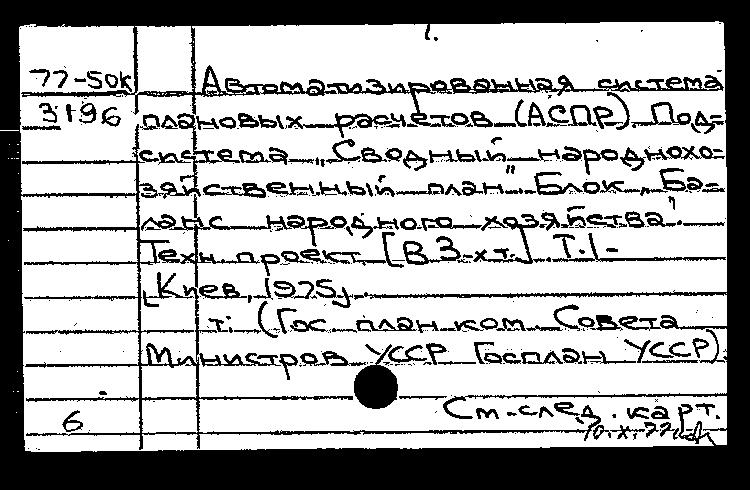 1.
77-50к Автоматизированная система
3196 плановых расчетов (АСПР). Под-
система „Сводный народнохо-
зяйственный план". Блок „Ба-
ланс народного хозяйства".
Техн. проект. [В 3-х т.]. Т. 1-
[Киев, 1975].
т: (Гос план ком Совета
Министров УССР Госплан УССР).
6 См. след. карт.
10.X.77